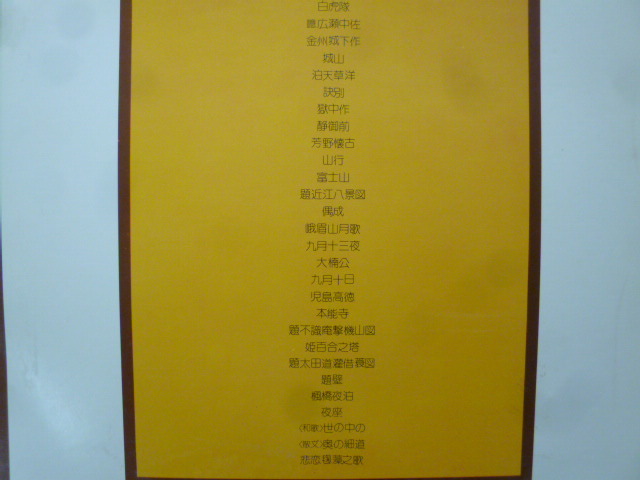 白虎隊
壇広瀬中佐
金州城下作
城山
泊天草洋
訣別
獄中作
静御前
芳野懐古
山行
富士山
題近江八景図
偶成
峨眉山月歌
九月十三夜
大楠公
九月十日
児島高徳
本能寺
題不識庵撃機山図
姫百合之塔
題太田道灌借蓑図
題壁
楓橋夜泊
夜座
(和歌)世の中の
(散文)奥の細道